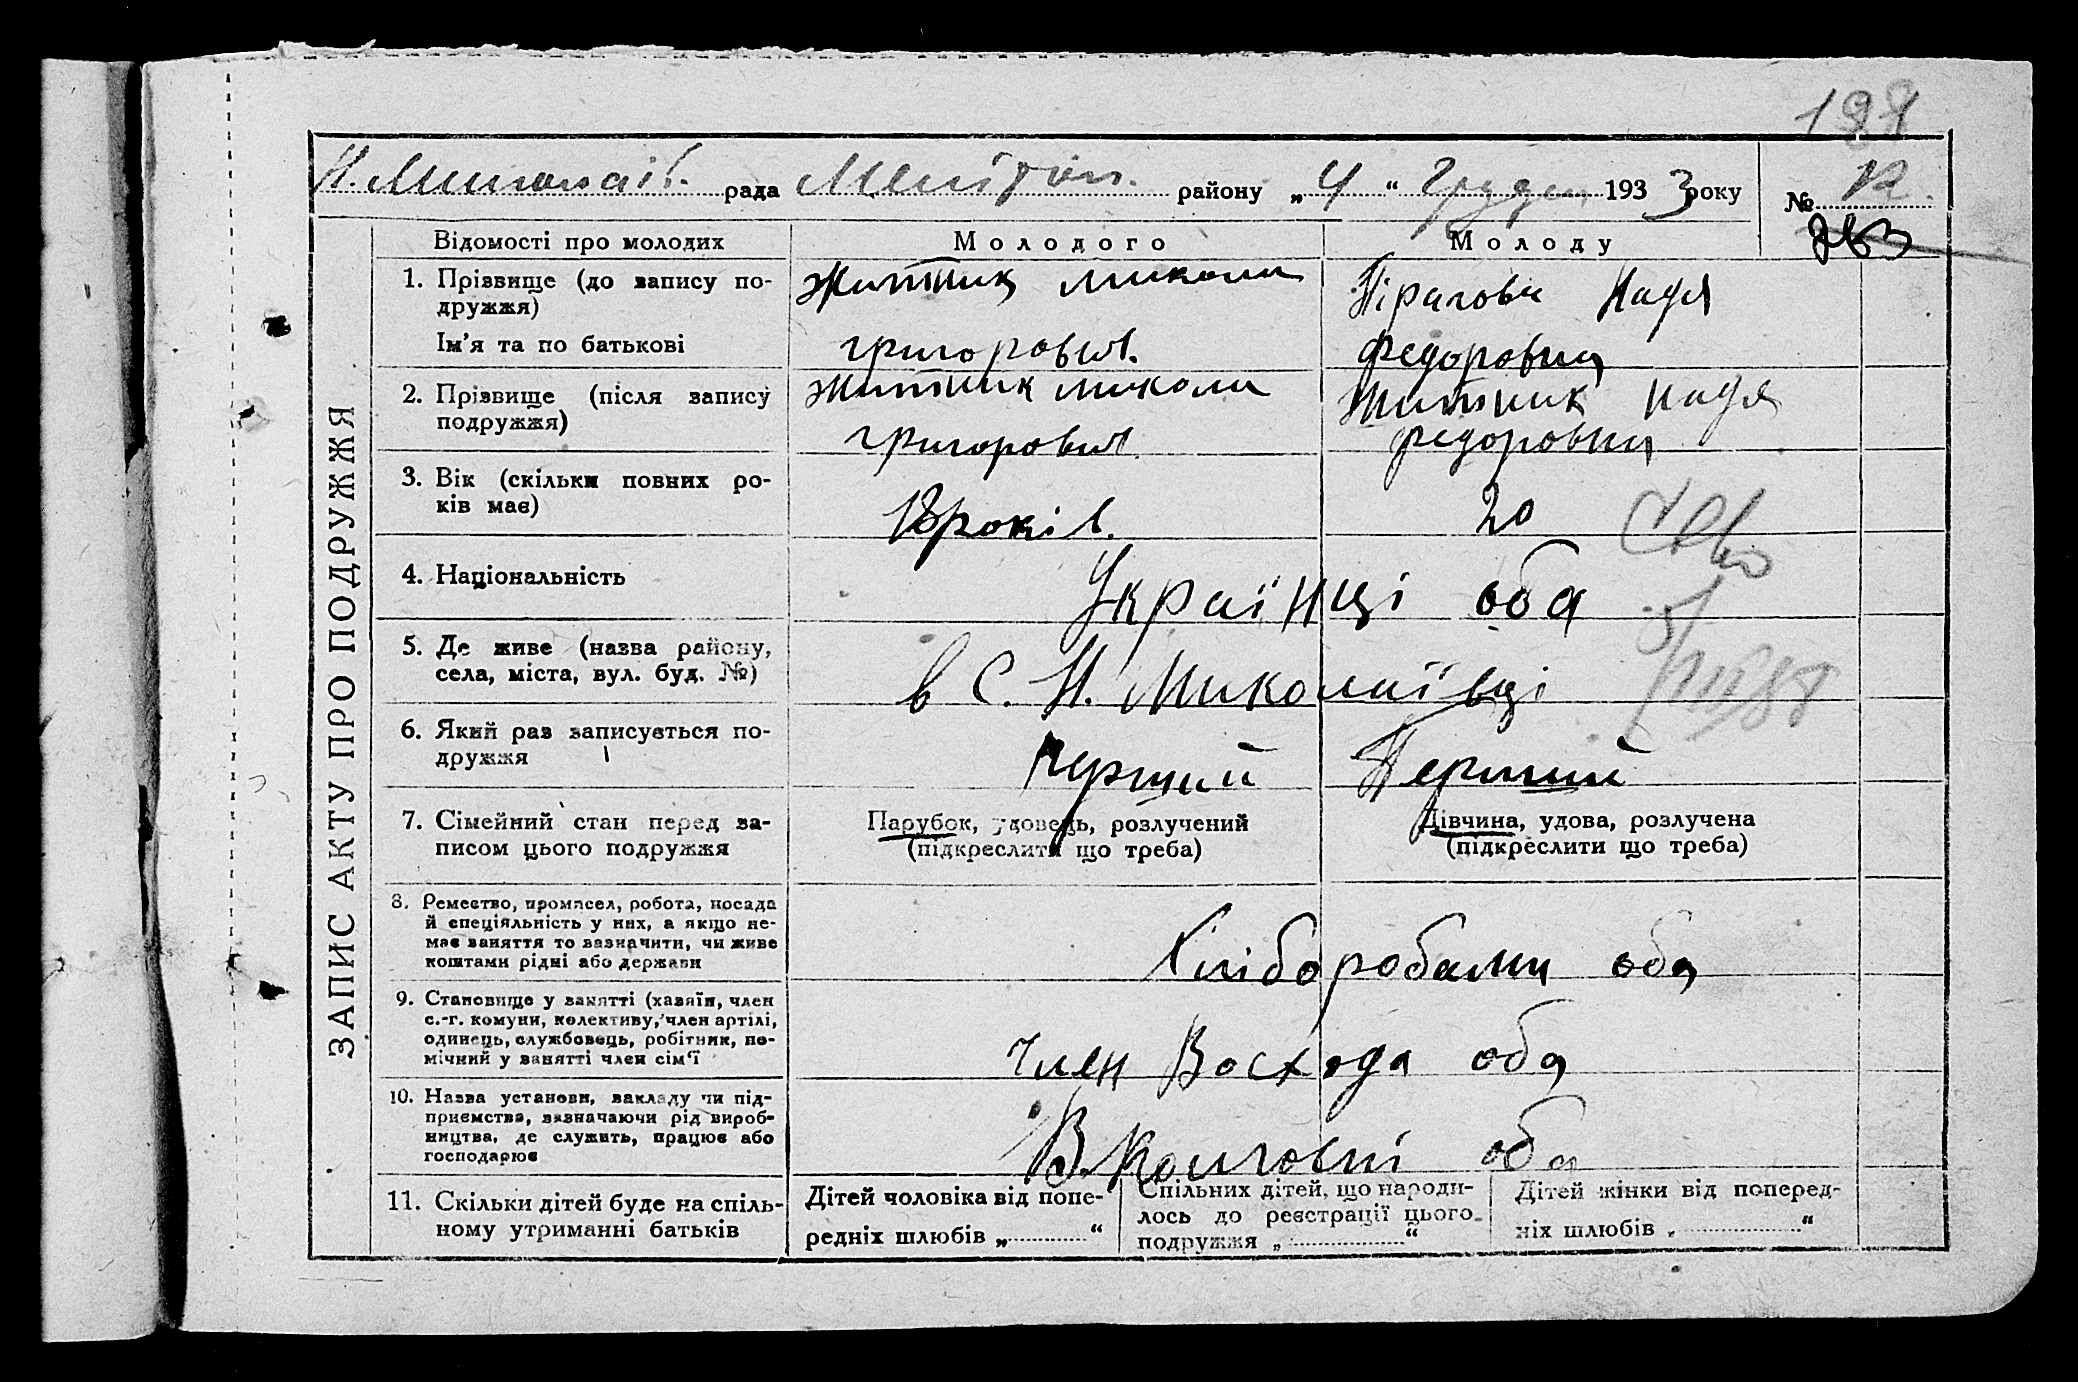 188
Н. Миколаїв. рада Меліт́оп. району „4“ Грудня 1933 року № 12
ЗАПИС АКТУ ПРО ПОДРУЖЖЯ
Відомості про молодих Молодого Молоду
1. Прізвище (до запису по-
дружжя)
Житник Микола Пірагова Надя
Ім'я та по батькові григорович. Федоровна
2. Прізвище (після запису
подружжя)
Житник микола Житник надя
григорович федоровна
3. Вік (скільки повних ро-
ків має)
18 років. 20
4. Національність Українці оба
5. Де живе (назва району,
села, міста, вул. буд. №)
в С. Н. Миколаївці
6. Який раз записується по-
дружжя
перший Перший
7. Сімейний стан перед за-
писом цього подружжя
Парубок, удовець, розлучений
(підкреслити що треба)
Дівчина, удова, розлучена
(підкреслити що треба)
8. Ремество, промисел, робота, посада
й спеціяльність у них, а якщо не-
має заняття то зазначити, чи живе
коштами рідні або держави
Хліборобами оба
9. Становище у занятті (хазяїн, член
с.-г. комуни, колективу, член артілі,
одинець, службовець, робітник, по-
мічний у занятті член сім'ї
член Восхода оба
10. Назва установи, закладу чи під-
приємства, зазначаючи рід вироб-
ництва, де служить, працює або
господарює
В. Колгоспі оба
11. Скільки дітей буде на спіль-
ному утриманні батьків
Дітей чоловіка від попе-
редніх шлюбів „ “
Спільних дітей, що народи-
лось до реєстрації цього
подружжя „ “
Дітей жінки від поперед-
ніх шлюбів „ “